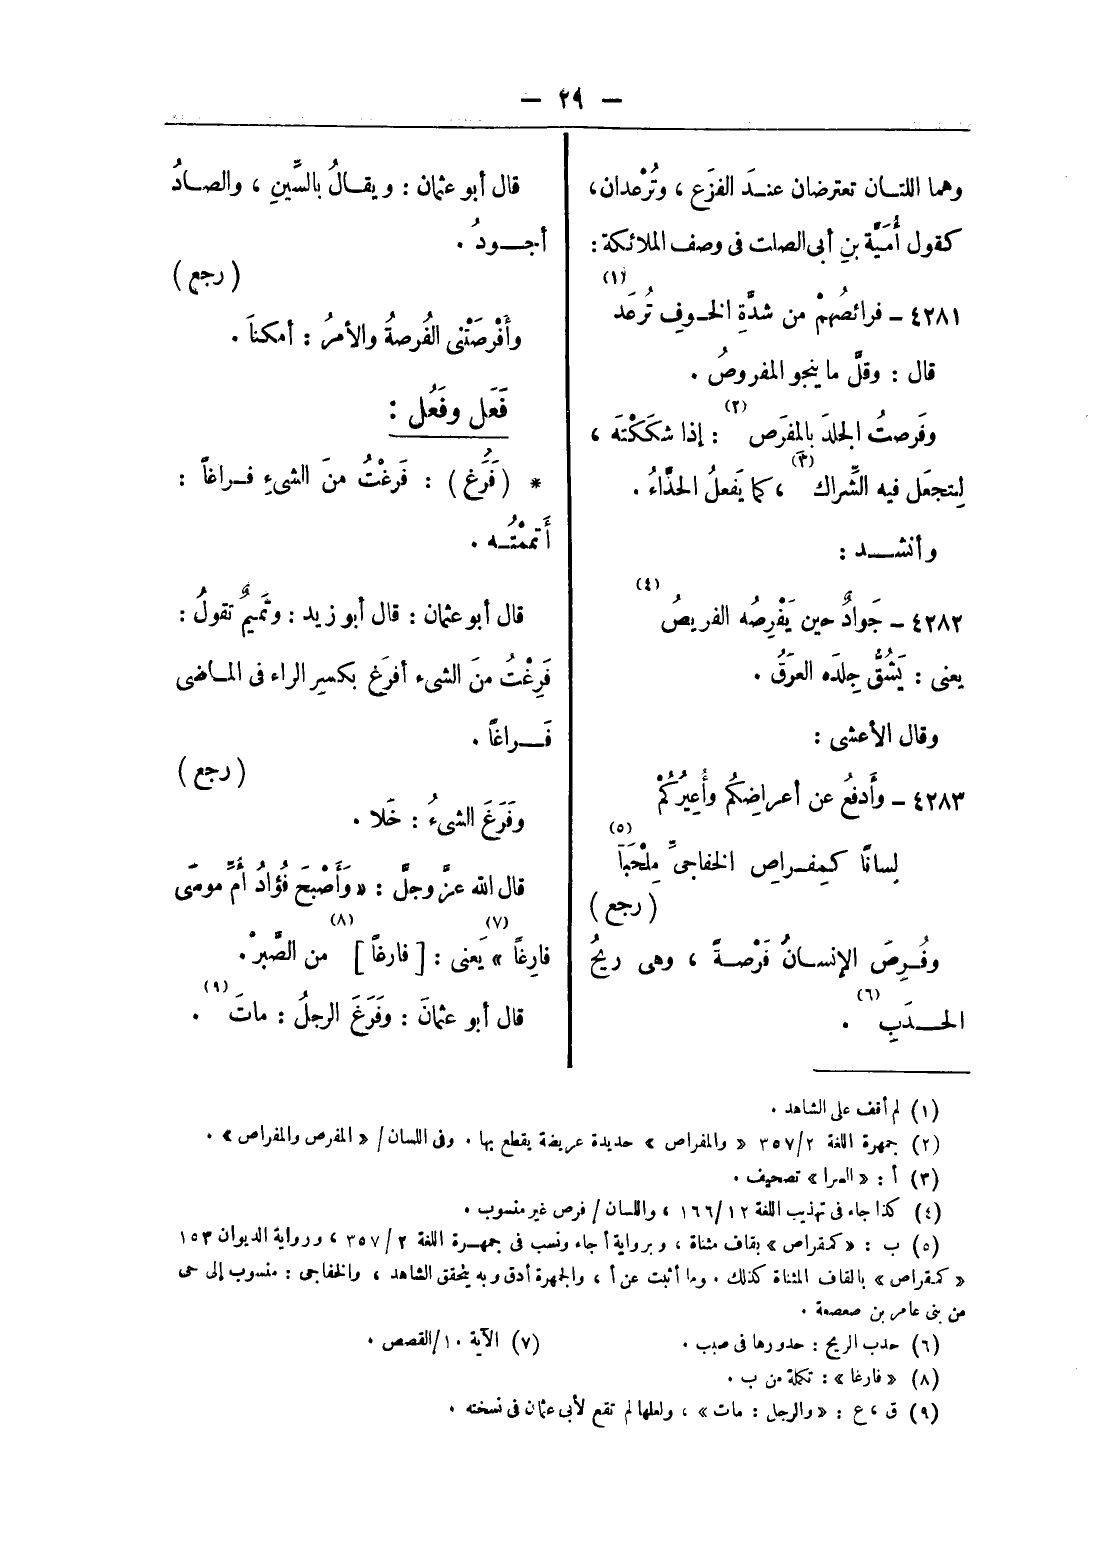 — ٢٩ —
وهما اللتـان تعترضان عنـدَ الفزَع ، وتُرْعدان،
كـقول أُمَيَّة بنِ أبى الصلت فى وصف الملائكة :
٤٢٨١ – فرائصُهمْ من شدَّةِ الخـوفِ تُرعَد (١)
قال : وقلَّ ما ينجو المفروصُ .
وفَرصتُ الجلدَ بالمِفْرَص (٢) : إذا شكَكْتَه ،
لِتجعَل فيه الشِّراك (٣) ، كما يَفعلُ الحذَّاءُ .
وأنشـــد :
٤٢٨٢ – جَوادٌ حين يَفْرِصُه الفريصُ (٤)
يعنى : يَشُقُّ جِلدَه العرَقُ .
وقال الأعشى :
٤٢٨٣ – وأَدفعُ عن أعراضِكُم وأُعِيرُكُمْ
لِسانًا كـمِفـراصِ الخفاجىِّ مِلْحَبَا (٥)
( رجع )
وفُـرِصَ الإنسـانُ فَرْصـةً ، وهى ريحُ
الحـــدَبِ (٦) .
قال أبو عثمان : ويقـالُ بالسِّينِ ، والصـادُ
أجـــودُ .
( رجع )
وأَفْرصَتْنى الفُرصةُ والأمرُ : أمكنـَا .
فَعَل وفَعُل :
* ( فَرَغ ) : فَرغْتُ منَ الشىءِ فـراغاً :
أَتممْتُـه .
قال أبو عثمان : قال أبو زيد : وتميمٌ تقولُ :
فَرِغْتُ منَ الشىء أفرَغ بكسرِ الراء فى المـاضى
فَـــراغاً .
( رجع )
وفَرَغَ الشىءُ : خَلا .
قال الله عزَّ وجلَّ : « وَأَصْبَحَ فُؤَادُ أُمِّ موسَى
فارِغاً » (٧) يَعنى : [ فارغاً ] (٨) من الصَّبرْ .
قال أبو عثمانَ : وفَرَغَ الرجلُ : ماتَ (٩) .
(١) لم أقف على الشاهد .
(٢) جمهرة اللغة ٣٥٧/٢ « والمفراص » حديدة عريضة يقطع بها . وفى اللسان / « المفرص والمفراص » .
(٣) أ : « السرا » تصحيف .
(٤) كذا جاء فى تهذيب اللغة ١٦٦/١٢ ، واللسان / فرص غير منسوب .
(٥) ب : « كمقراص » بقاف مثناة ، وبرواية أ جاء ونسب فى جمهـرة اللغة ٣٥٧/٢ ، ورواية الديوان ١٥٣
« كمقراص » بالقاف المثناة كذلك . وما أثبت عن أ ، والجمهرة أدق وبه يتحقق الشاهد ، والخفاجى : منسوب إلى حى
من بنى عامر بن صعصعة .
(٦) حدب الريح : حدورها فى صبب .
(٧) الآية ١٠/القصص .
(٨) « فارغا » : تكملة من ب .
(٩) ق ، ع : « والرجل : مات » ، ولعلها لم تقع لأبى عثمان فى نسخته .